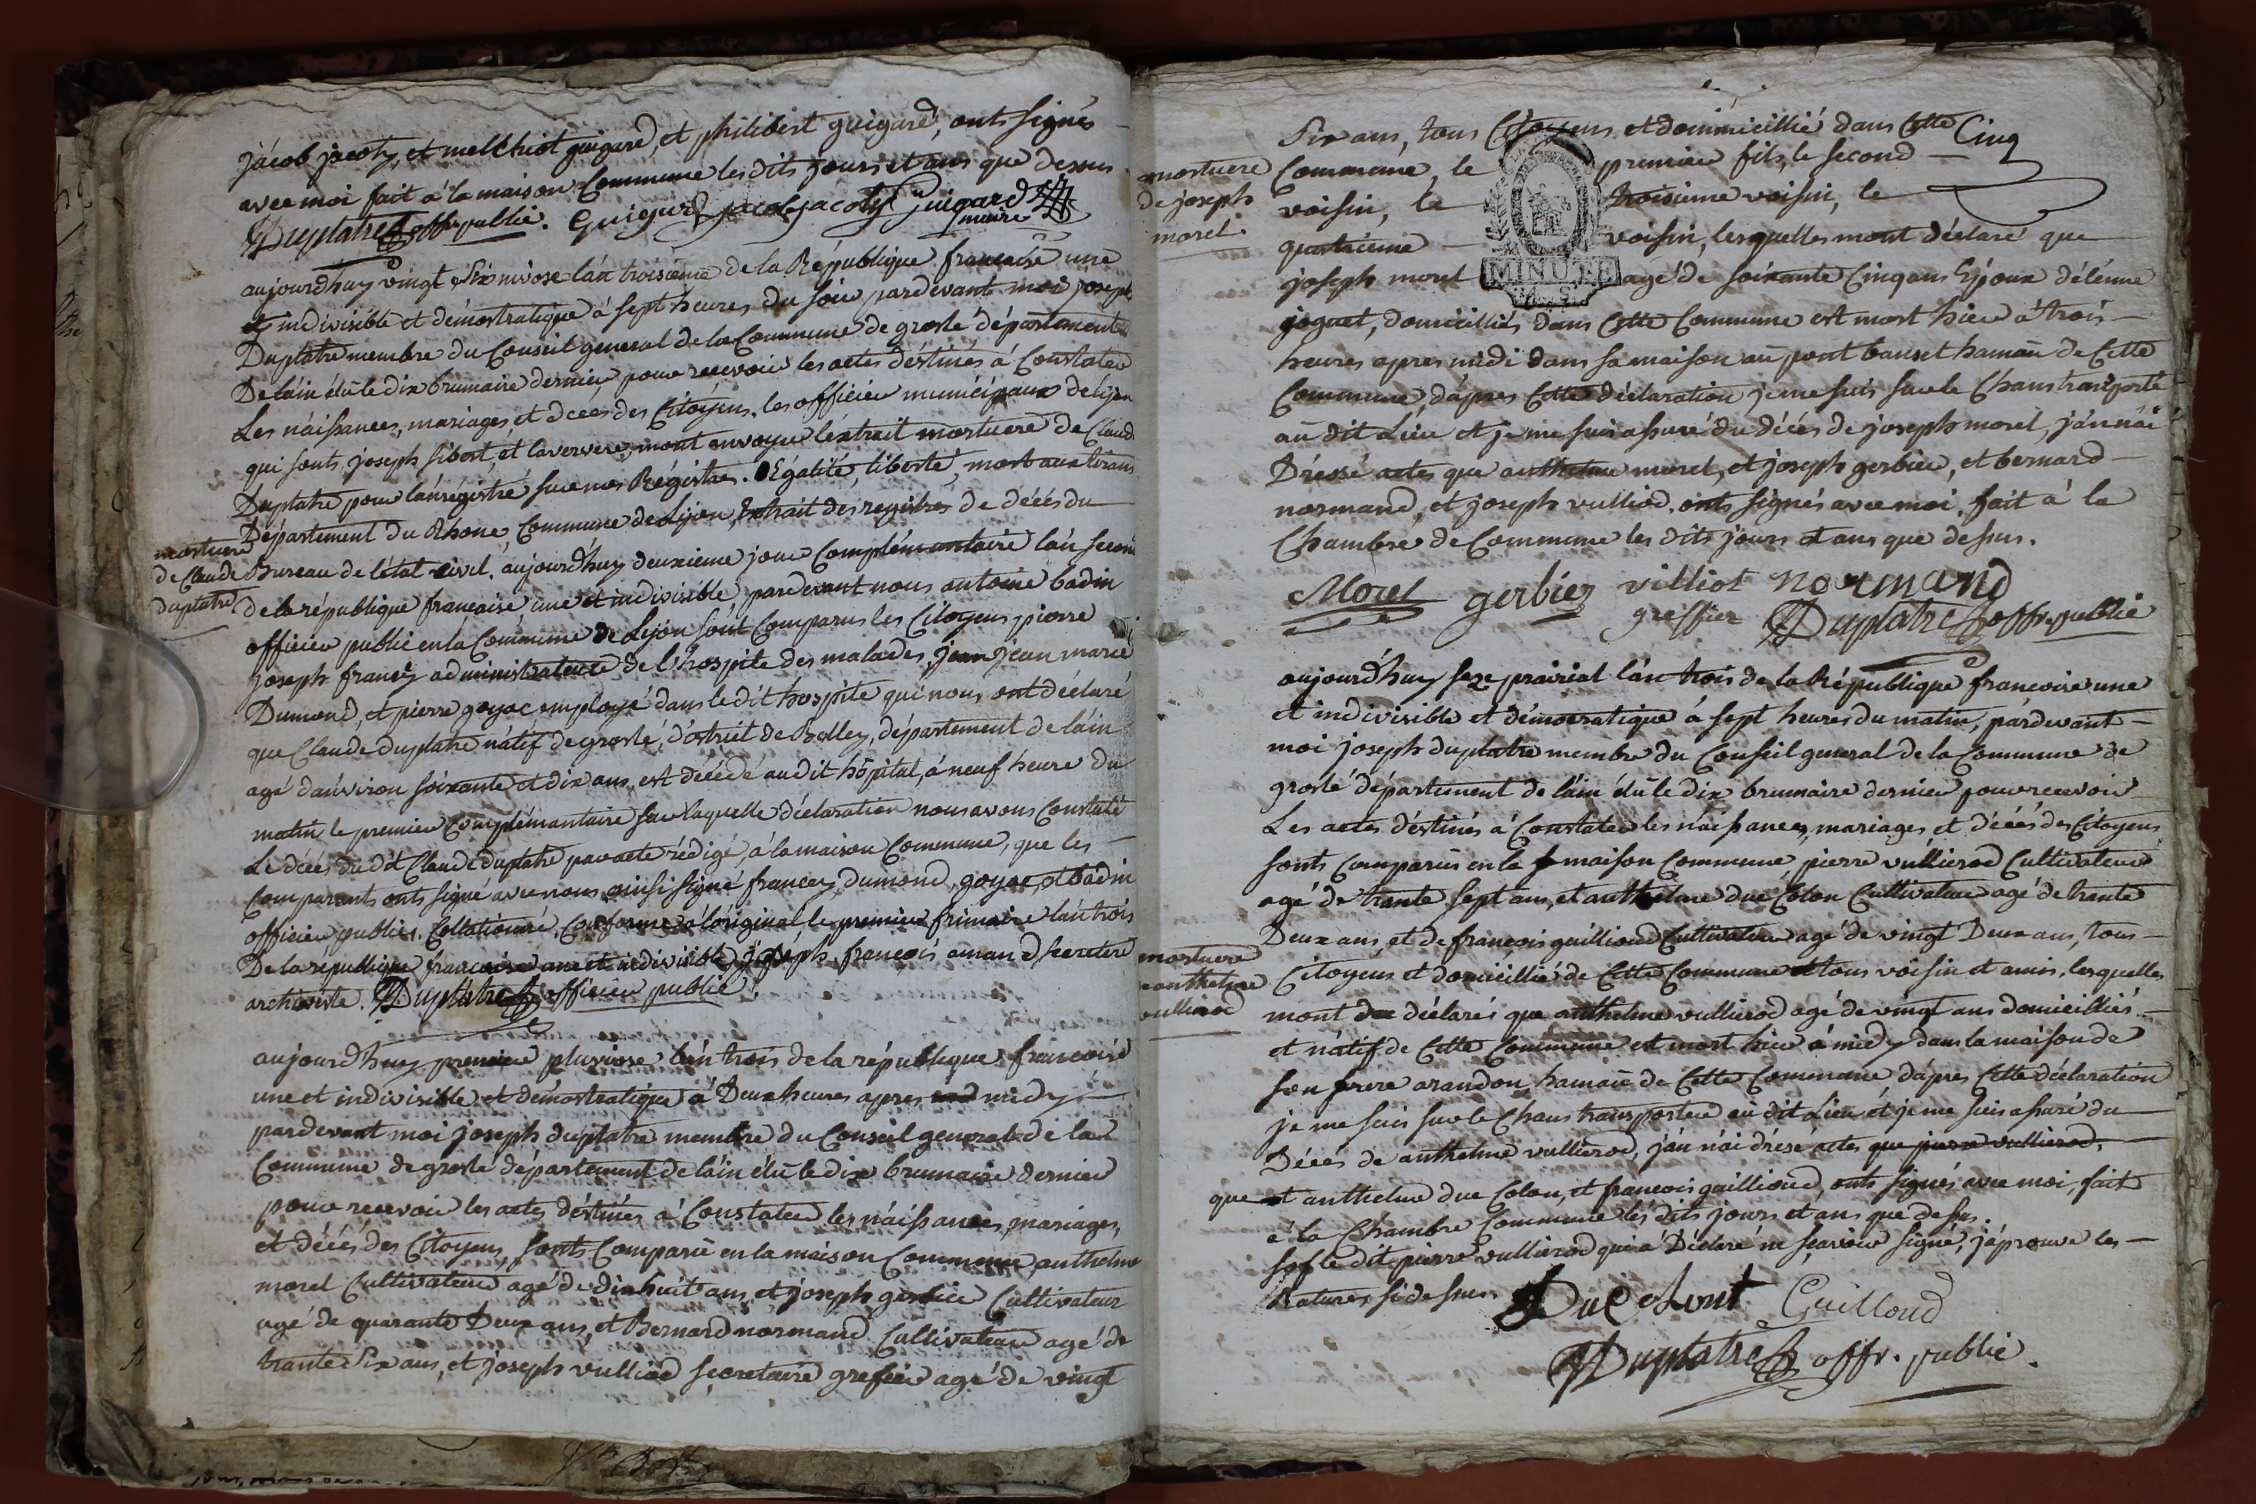 jácob jacoty, et melchiot guigard, et philibert guigard, ont signés
avec moi fait á la maison Commune les dits jours et ans que dessus
Duplatre off. public. Guigard jacob jacoty Guigard
meure
aujourd'huy vingt Six nivose l'án troisième de la Réppublique francoise une
et indivisible et démostratique á sept heures du soir pardevant moi joseph
Duplatre membre du Conseil general de la Commune de groslé département
De láin élû le dix brumaire dernier pour recevoir les actes déstinés á Constater
Les náissances, mariages, et décés des Citoÿens, les officier municipaux de lÿon
qui sont joseph sibert, et laververe, mont envoyer léxtrait mortuere de Claud
Duplatre pour lánrégistré sur mes Régistres. Égalité, liberté, mort aux tirans
Département du Rhone, Commune de Lÿon, Extrait des registres de décés du
mortuere
de Claude
duplatre
Bureau de létat civil, aujourd'huy deuxieme jour Complémantaire lán second
de la république francaise une et indivisible, pardevant nous antoine badin
officier public en la Commune de Lyon sont Comparus les Citoyens pierre
joseph francey administrateur de l'hospite des malades, jean jean marie
Dumond, et pierre goyac employé dans le dit hospite qui nous ont déclaré
que Claude duplatre nátif de groslé, district de Belley, département de láin
agé dánviron soixante et dix ans, est décédé au dit hôpital, á neuf heure du
matin le premier Complémantaire sur laquelle déclaration nous avons Constaté
Le décés du dit Claude duplatre par acte rédigé, á la maison Commune, que les
Comparants ont signé avec nous ainsi signé francey, dumond, goyac, et badin
officier public. Collationné. Conforme á lóriginal, le premier frimaire lán trois
De la république francaise une et indivisible, joséph francois amand secretere
archiviste. Duplatre officier public.
aujourd'huy premier pluviose lán trois de la république francoise
une et indivisible et démostratique á Deux heures apres mid midy
pardevant moi joseph duplatre membre du Conseil general de la
Commune de groslé département de láin élû le dix brumaire dernier
pour recevoir les actes déstinés á Constater les náissances, mariages,
et décés des Citoyens, sonts Comparû en la maison Commune, anthelme
morel Cultivateur agé de dixhuit ans, et joseph gerbier Cultivateur
agé de quarante Deux ans, et Bernard normand Cultivateur agé de
trante Six ans, et joseph vulliod secretairé grefier agé de vingt
Six ans, tous Citoyens et domicillié dans Cette Cinq
mortuere
de joseph
morel.
Commune, le premier fils, le second
voisin, le troisieme voisin, le
quatrieme voisin, lesquelles mont déclaré que
MINUTE
joseph morel agé de soixante Cinq ans Époux détenne
goguet, domicilliés dans Cette Commune est mort hier á trois
heures apres midi dans sa maison aû pont bancet hamaû de Cette
Commune, dápres Cette déclaration je me suis sur le Chans transporté
aû dit Lieu et je me suis assuré du décés de joseph morel, ján nái
Dréssé actes que anthelme morel, et joseph gerbier, et bernard
normand, et joseph vulliod, onts signés avec moi, fait á la
Chambre de Commune les dits jours et ans que dessus.
Morel gerbier villiot normand
greffier Duplatre off. public
aujourd'huy seze prairial lán trois de la République francoise une
et indivisible et démocratique á sept heures du matin, pardevant
moi joseph duplatre membre du Conseil general de la Commune de
groslé département de láin élû le dix brumaire dernier pour recevoir
Les actes déstinés á Constater les náissances, mariages et décés des Citoyens
sonts Comparûs en la maison Commune, pierre vullierod Cultivateur
agé de trante sept ans, et anthelme duc Colon Cultivateur agé de trante
Deux ans, et de francois guilliond Cultivateur agé de vingt Deux ans, tous
mortuere
anthelme
vullierod
Citoyens et domicillié de Cette Commune et tous voisin et amis, lesquelles
mont de déclarés que anthelme vullierod agé de vingt ans domicilliés
et nátif de Cette Commune est mort hier á midy dans la maison de
son frere arandon, hamaû de Cette Commune, dápres Cette déclaration
je me suis sur le Chans transporter aû dit Lieu et je me suis assuré du
Décés de anthelme vullierod, ján nái drésé actes que pierre vullierod,
que et anthelme duc Colon, et francois guilliond, onts signés avec moi, fait
á la Chambre Commune les dits jours et ans que dessus.
sof le dit pierre vullierod qui á Déclaré ne sçavoir signé, jáprouve les
Ratures si dessus Duc olont Guilloud
Duplatre offr. public.